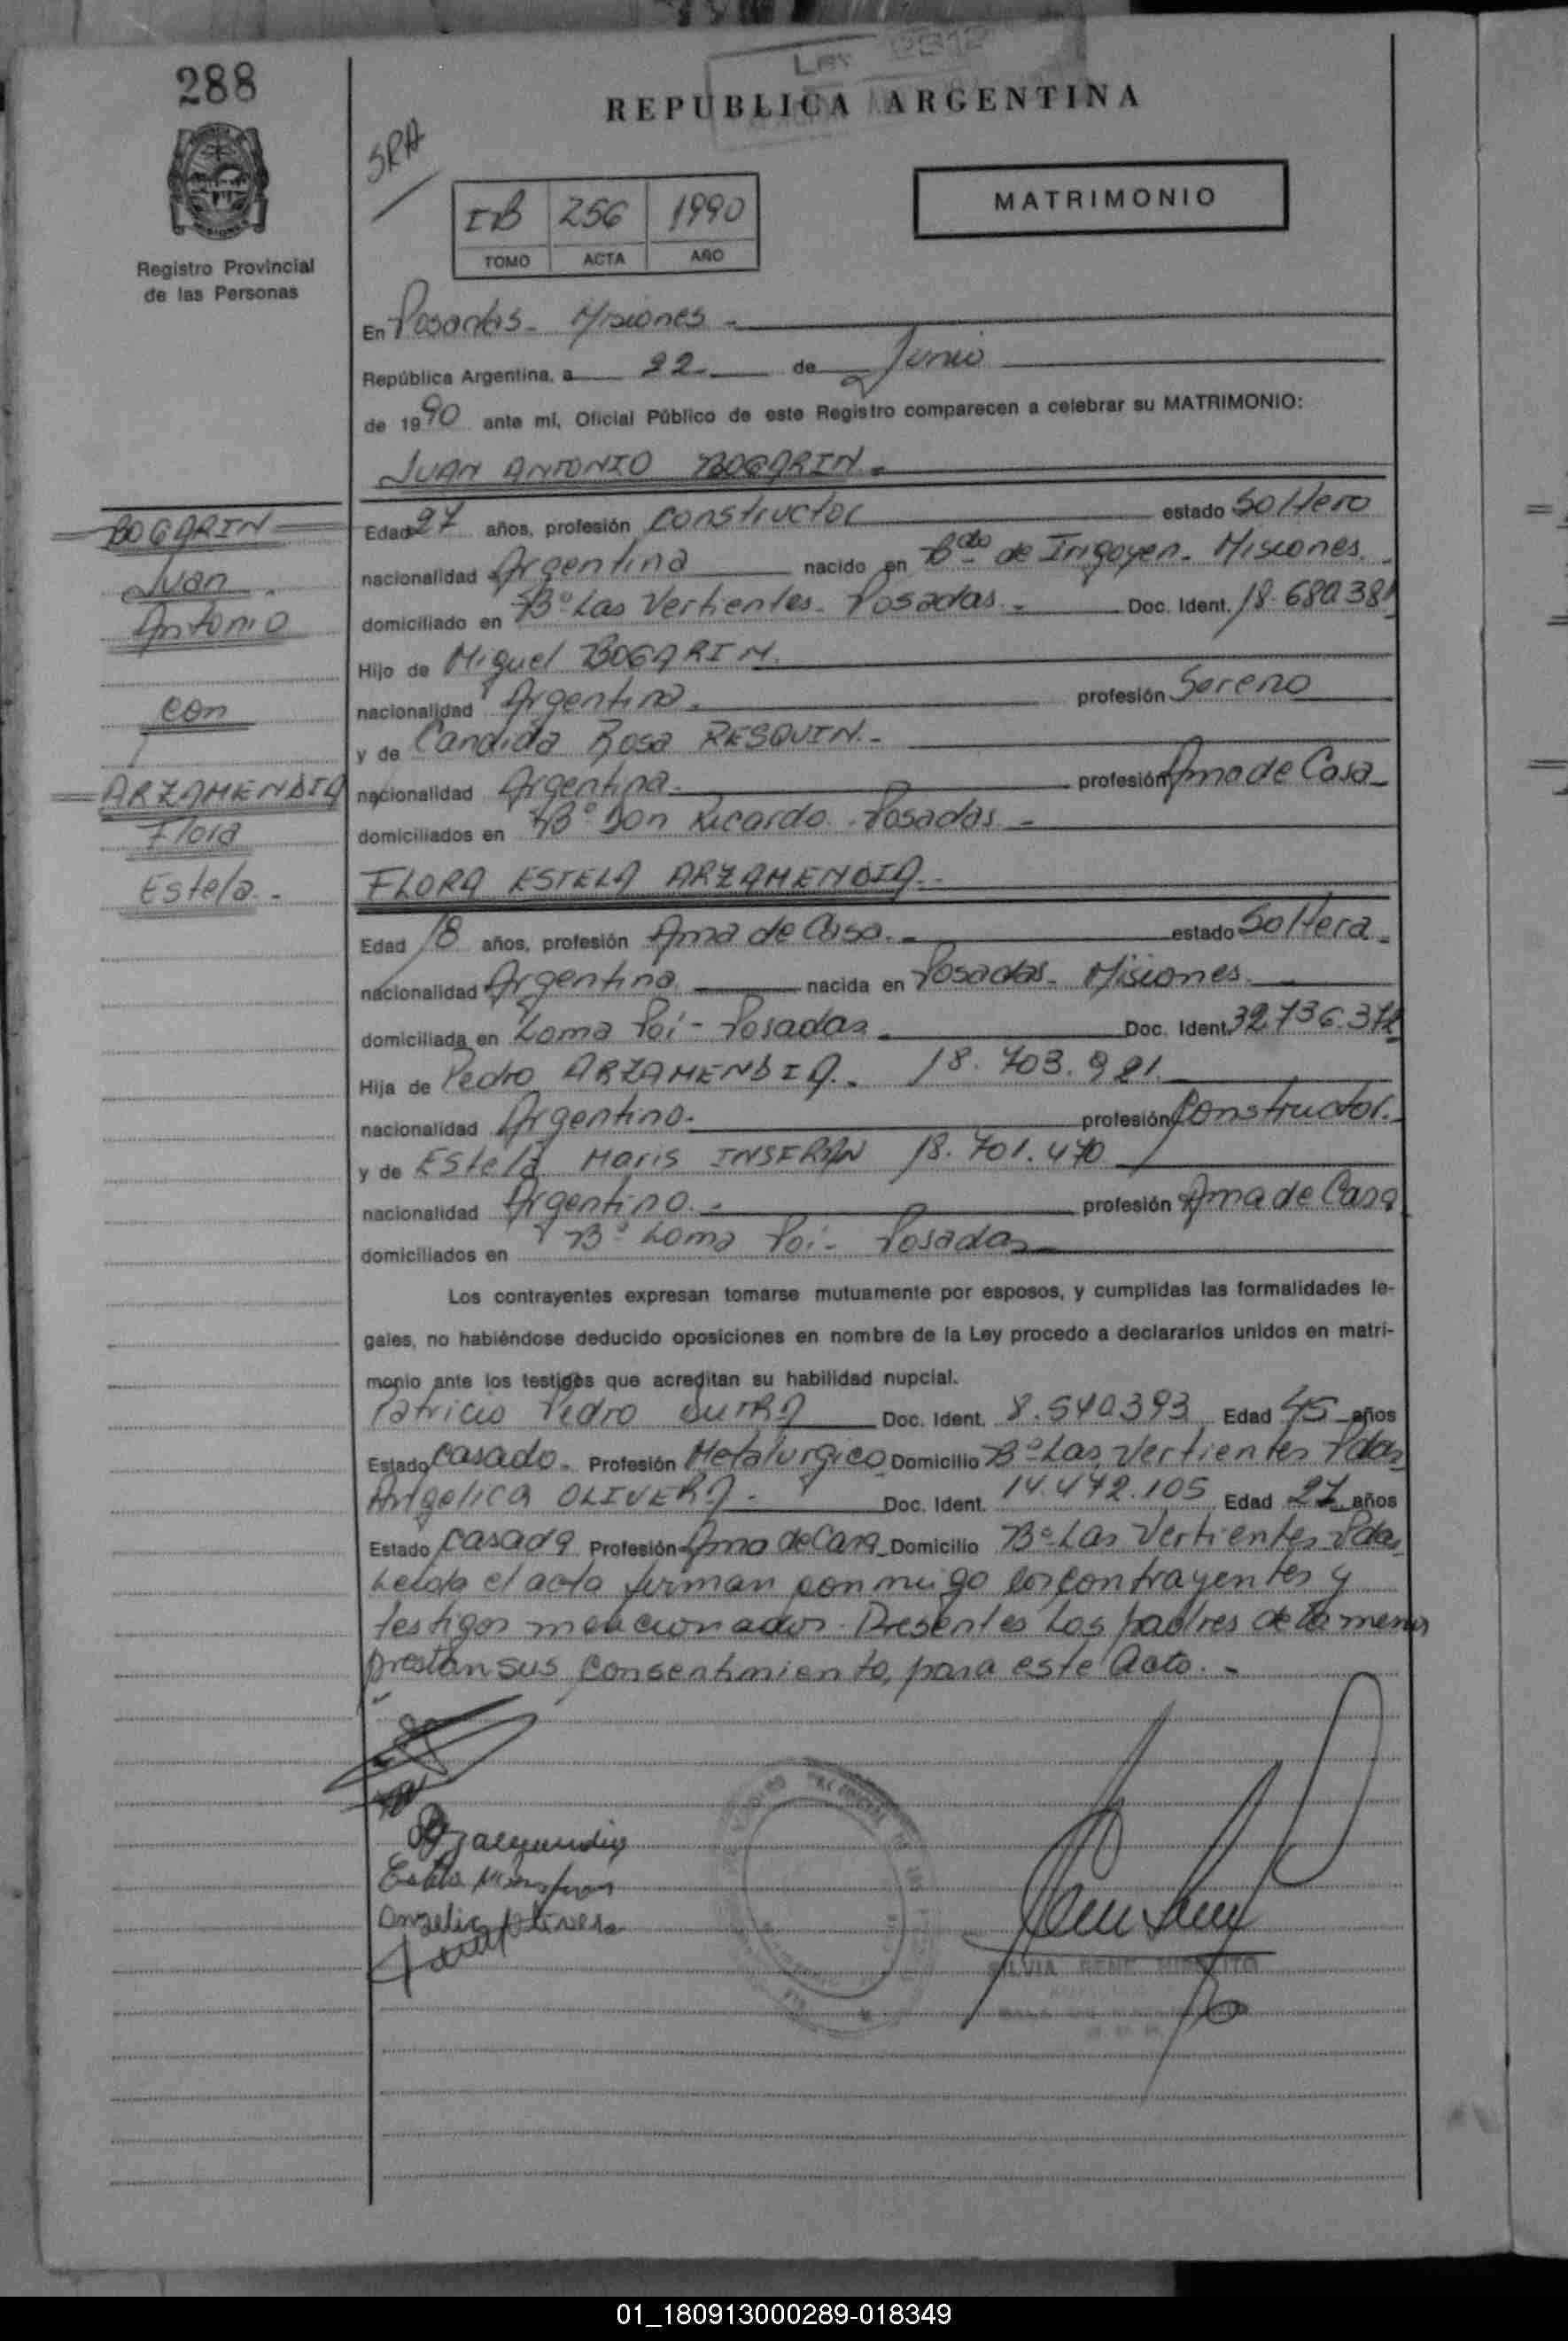 288
LEY
REPUBLICA ARGENTINA
SRA
MATRIMONIO
IB 256 1990
TOMO ACTA AÑO
Registro Provincial
de las Personas
En Posadas - Misiones -
República Argentina, a 22 de Junio
de 1990 ante mi, Oficial Público de este Registro comparecen a celebrar su MATRIMONIO:
JUAN ANTONIO BOGARIN -
BOGARIN
Juan
Antonio
con
ARZAMENDIA
Flora
Estela -
Edad 27 años, profesión Constructor estado Soltero
nacionalidad Argentina nacido en Bdo de Irigoyen - Misiones.
domiciliado en Bº Las Vertientes - Posadas - Doc. Ident. 18.680.381
Hijo de Miguel BOGARIN.
nacionalidad Argentina. profesión Sereno
y de Candida Rosa RESQUIN. -
nacionalidad Argentina. profesión Ama de Casa
domiciliados en Bº Don Ricardo - Posadas -
FLORA ESTELA ARZAMENDIA. -
Edad 18 años, profesión Ama de Casa. - estado Soltera -
nacionalidad Argentina nacida en Posadas - Misiones.
domiciliada en Loma Poi - Posadas Doc. Ident. 32.736.372
Hija de Pedro ARZAMENDIA. 18.703.921
nacionalidad Argentino. profesión Constructor.
y de Estela Maris INSFRAN 18.701.470
nacionalidad Argentino. - profesión Ama de Casa
domiciliados en Bº Loma Poi - Posadas
Los contrayentes expresan tomarse mutuamente por esposos, y cumplidas las formalidades le-
gales, no habiéndose deducido oposiciones en nombre de la Ley procedo a declararlos unidos en matri-
monio ante los testigos que acreditan su habilidad nupcial.
Patricio Pedro DUTRA Doc. Ident. 8.540.393 Edad 45 años
Estado Casado - Profesión Metalurgico Domicilio Bº Las Vertientes Pdas
Angelica OLIVERA - Doc. Ident. 14.472.105 Edad 27 años
Estado Casada Profesión Ama de Casa Domicilio Bº Las Vertientes Pdas
Leida el acta firman conmigo los contrayentes y
testigos mencionados - Presentes los padres de la menor
prestan sus consentimiento, para este Acto. -
Angelica Olivera
SILVIA RENE
01_180913000289-018349